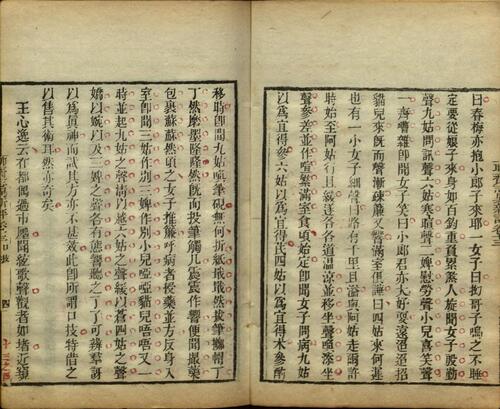 曰春梅亦抱小郎子來耶一女子曰拗哥子嗚之不睡
定要從娘子來身如百鈞重負累煞人旋聞女子殷勤
聲九姑問訊聲六姑寒暄聲二婢慰勞聲小兒喜笑聲
一齊嘈雜即聞女子笑曰小郎君亦大好耍遠迢迢招
貓兒來既而聲漸疎簾又響滿室俱譁曰四姑來何遲
也有一小女子細聲曰路有千里且溢與阿姑走爾許
時始至阿姑行且緩遂各各道溫涼並移坐聲喚添坐
聲參差並作喧繁滿室食頃始定即聞女子問病九姑
以為宜得參六姑以為宜得芪四姑以為宜得朮參酌
移時即聞九姑喚筆硯無何折紙戢戢然拔筆擲帽丁
丁然磨墨隆隆然既而投筆觸几震震作響便聞撮藥
包裹蘇蘇然頃之女子推簾呼病者授藥並方反身入
室即聞三姑作別三婢作別小兒啞啞貓兒唔唔又一
時並起九姑之聲清以越六姑之聲緩以蒼四姑之聲
嬌以婉以及三婢之聲各有態響聽之了了可辨羣訝
以為真神而試其方亦不甚效此即所謂口技特借之
以售其術耳然亦奇矣
王心逸云在都偶過市廛聞絃歌聲觀者如堵近窺
四